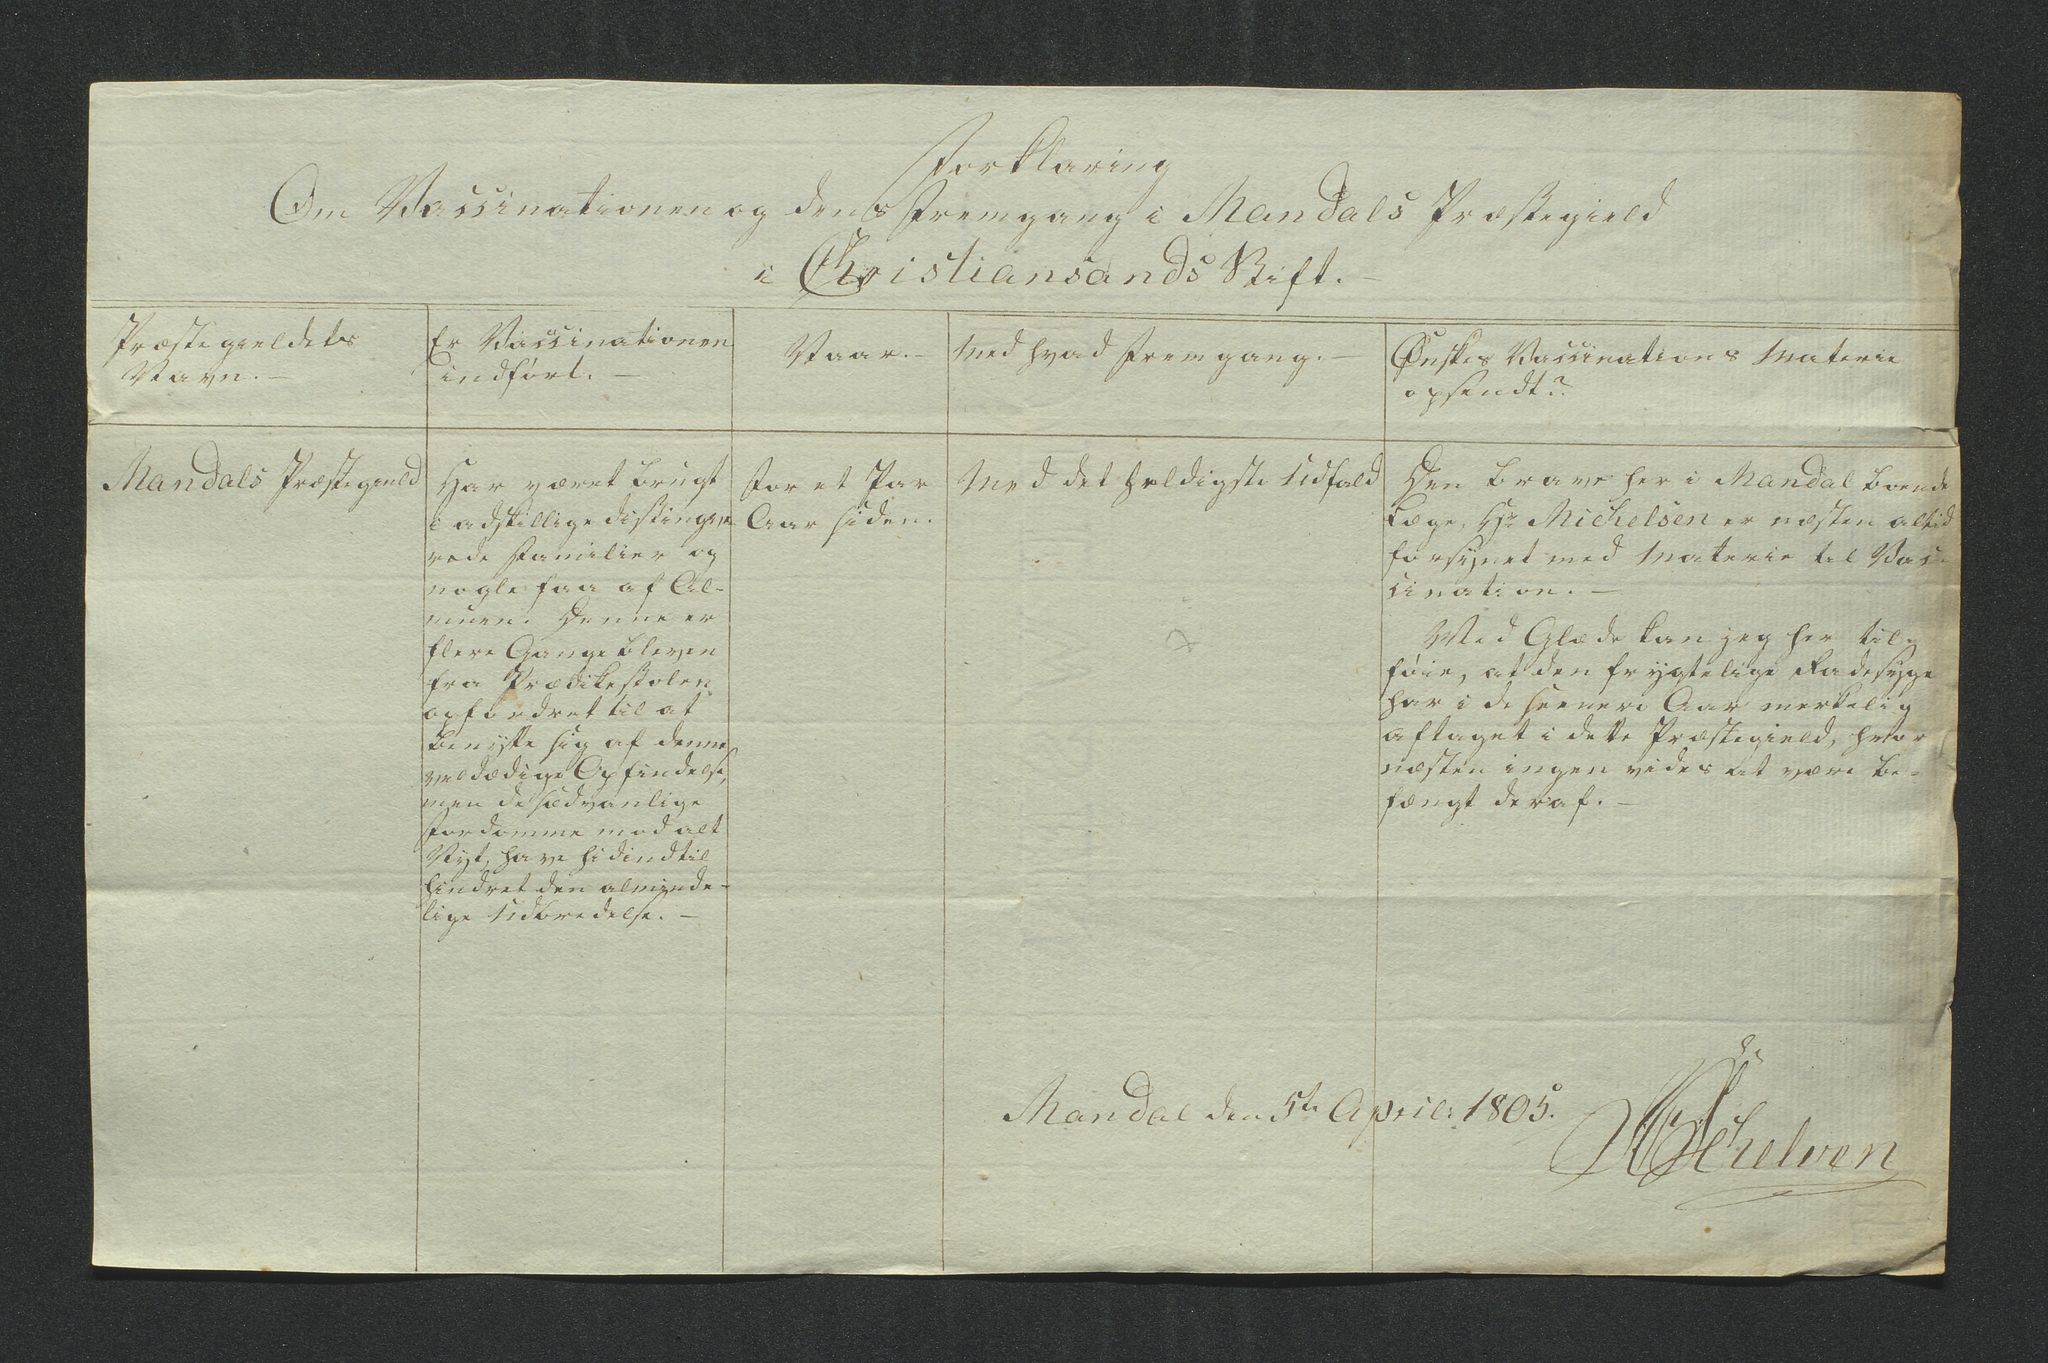 Forklaring
Om Vaccinationen og dens Fremgang i Mandals Præstegield
i Christiansands Stift. –
Præstegieldets
Navn. –
Er Vaccinationen
indført. –
Naar. –
Med hvad Fremgang. –
Ønskes Vaccinations Materie
opsendt?
Mandals Præstegield
Har været brugt
i adskillige distingve
rede Familier og
nogle faa af Al-
muen. Denne er
flere Gange bleven
fra Prædikestolen
opfordret til at
benytte sig af denne
veldædige Opfindelse,
men de sædvanlige
Fordomme mod alt
Nyt, have hidindtil
hindret den alminde-
lige Udbredelse. –
For et Par
Aar siden.
Med det heldigste Udfald
Den brave her i Mandal boende
Læge, Hr Michelsen er næsten altid
forsynet med Materie til Vac-
cination. –
Med Glæde kan jeg her til-
føie, at den frygtelige Radesyge
har i de seenere Aar merkelig
aftaget i dette Præstegield, hvor
næsten ingen vides at være be-
fængt deraf. –
Mandal den 5te April: 1805.